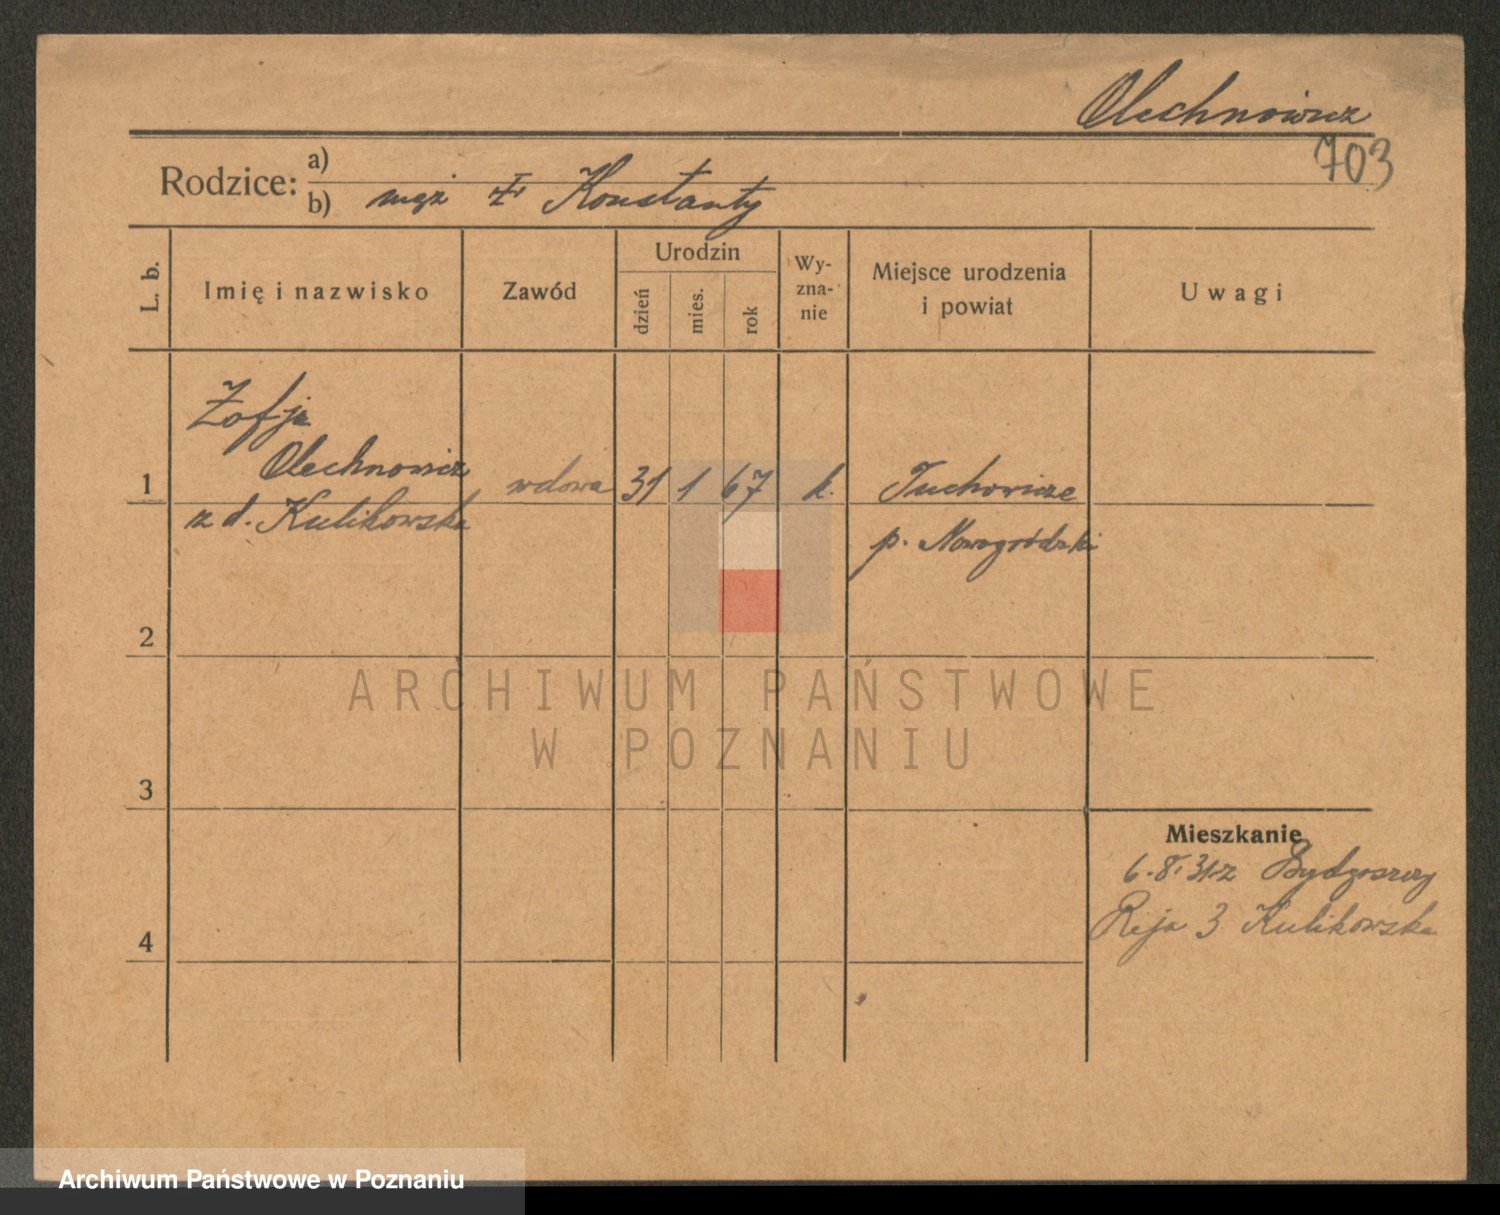 Olechnowicz
703
Rodzice:
a)
b) mąż Konstanty
L. b.
Imię i nazwisko
Zawód
Urodzin
dzień
mies.
rok
Wy-
zna-
nie
Miejsce urodzenia
i powiat
Uwagi
Zofja
Olechnowicz
1 wdowa 31 1 67 k. Tuchowicze
z d. Kulikowska
p. Nowogródzki
2
ARCHIWUM PAŃSTWOWE
W POZNANIU
3
Mieszkanie
6.8.31 z Bydgoszczy
4
Reja 3 Kulikowska
Archiwum Państwowe w Poznaniu